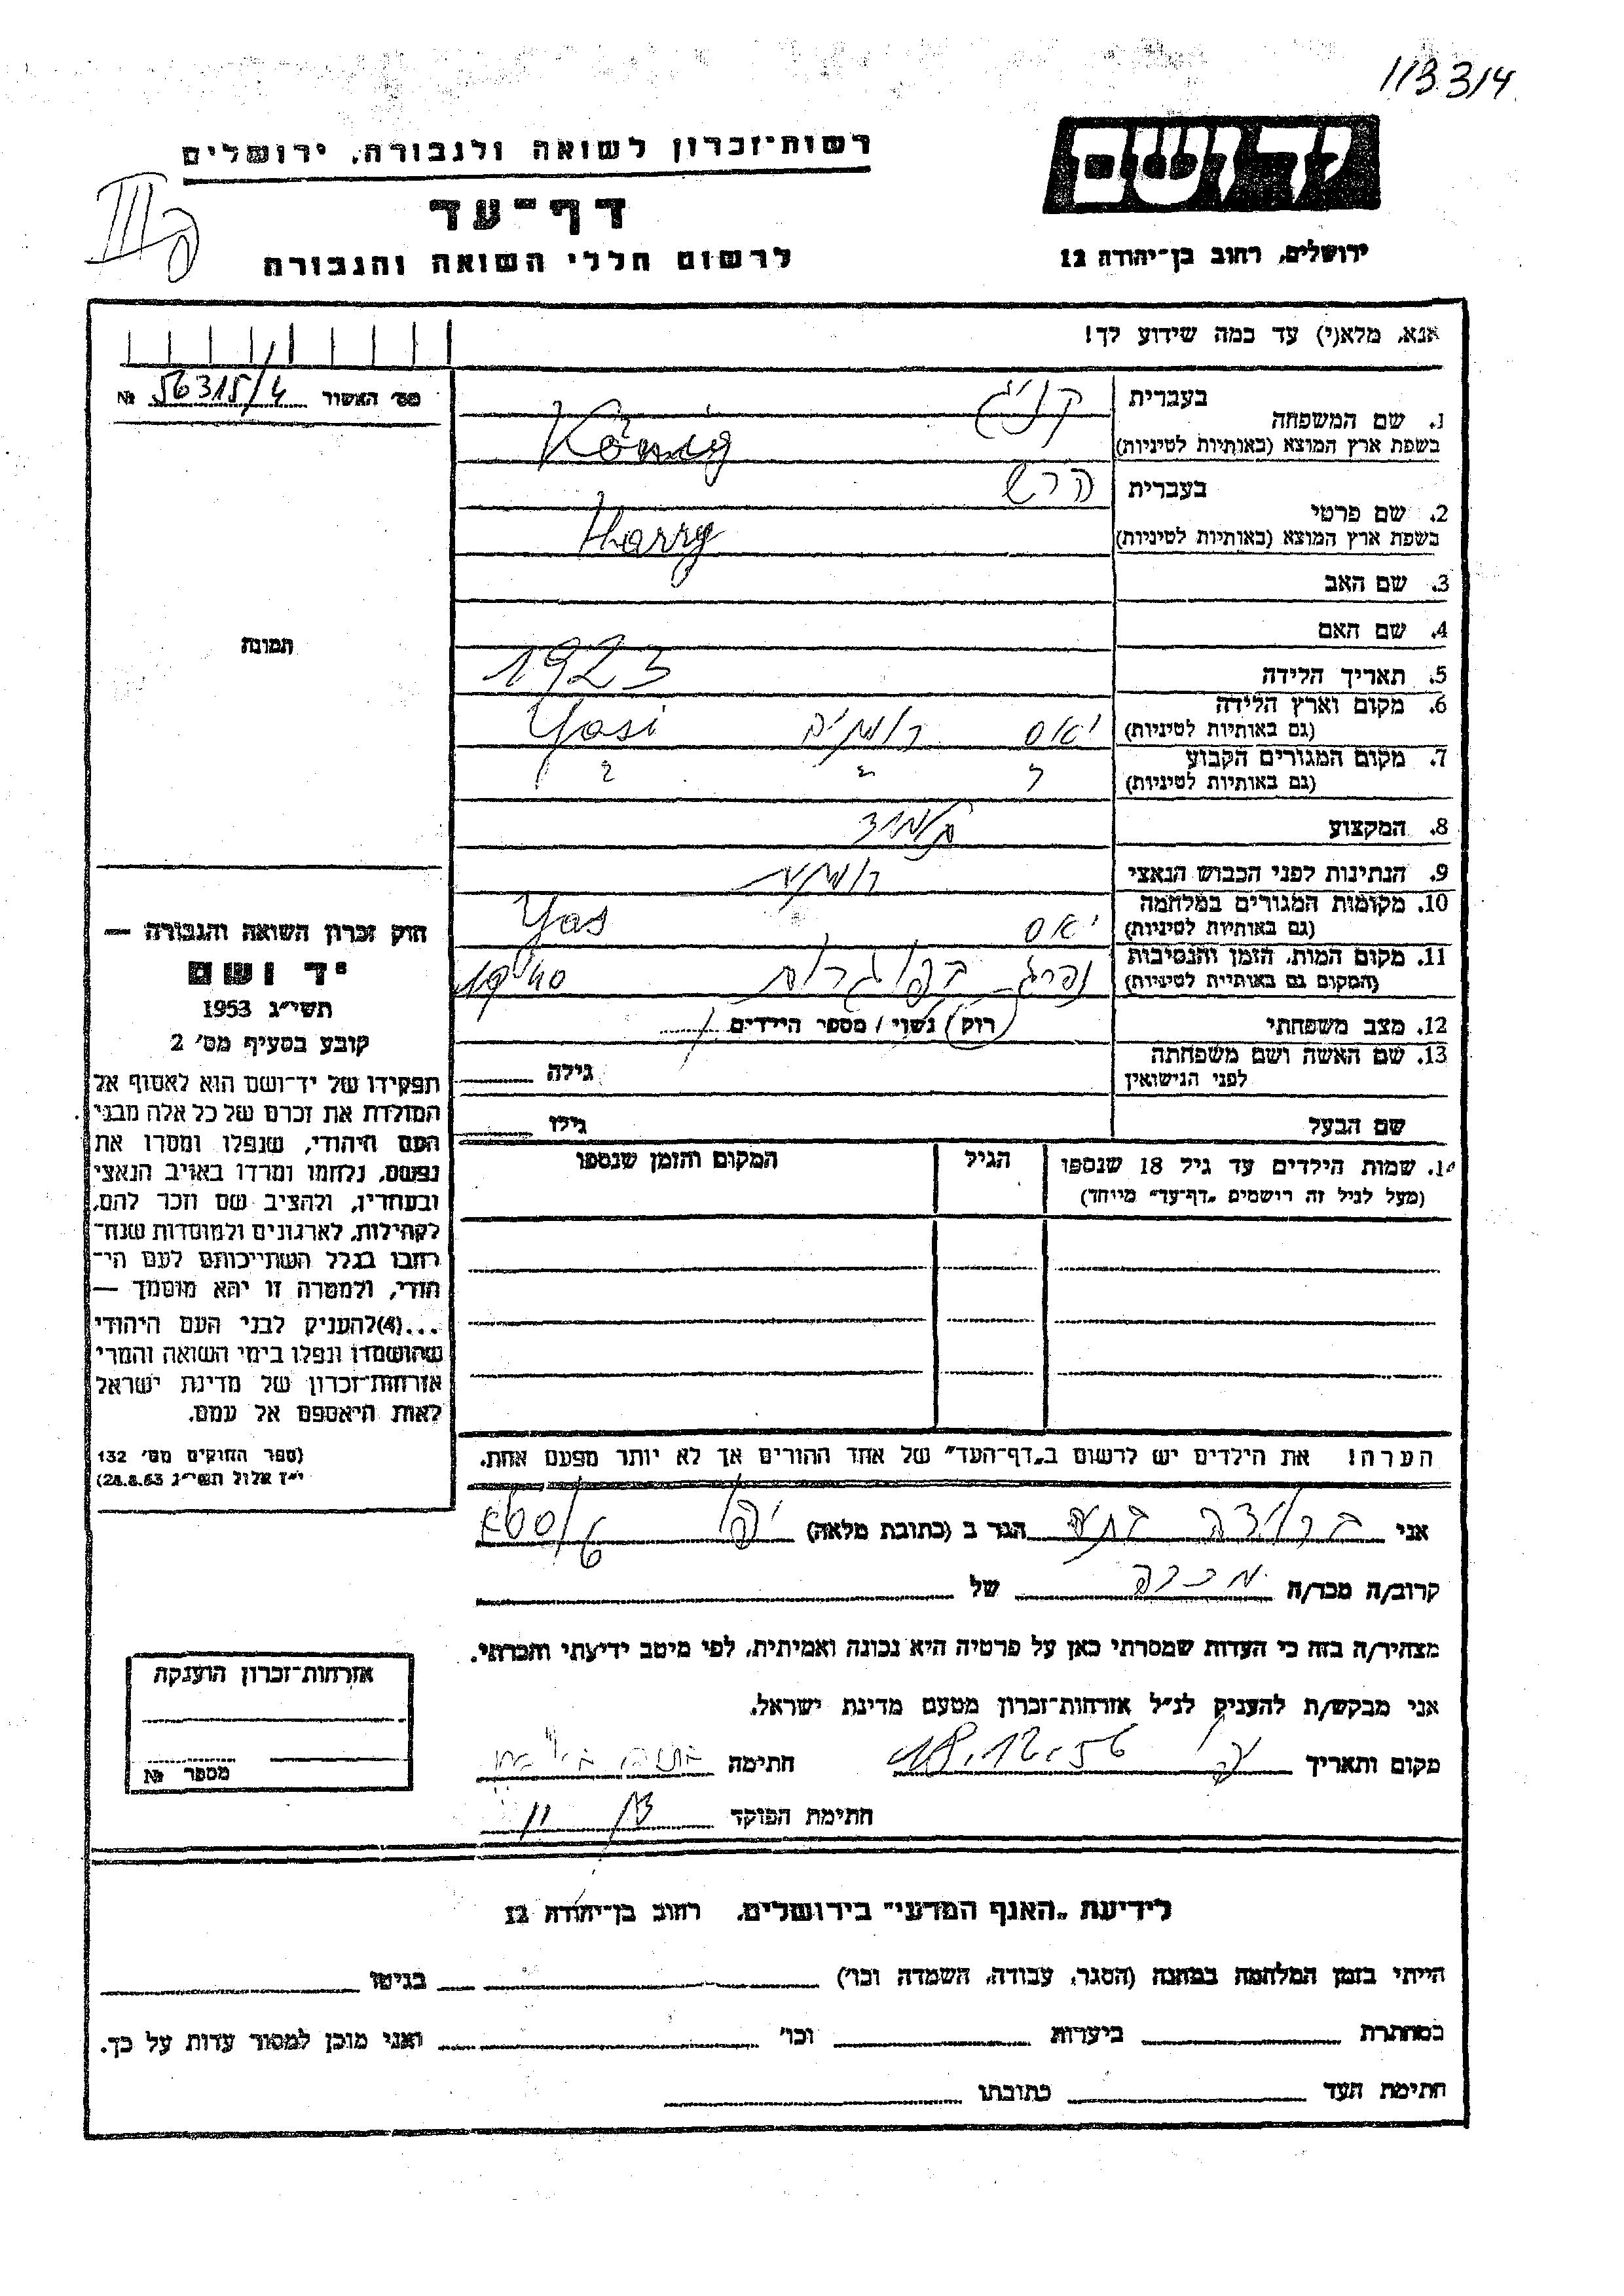 113314
יד ושם
ירושלים, רחוב בן־יהודה 12
רשות־זכרון לשואה ולגבורה, ירושלים
דף־עד
לרשום חללי השואה והגבורה
אנא, מלא(י) עד כמה שידוע לך!
מס׳ האשור 56315/4 №
תמונה
1. שם המשפחה
בעברית קניג
בשפת ארץ המוצא (באותיות לטיניות) König
2. שם פרטי
בעברית הרש
בשפת ארץ המוצא (באותיות לטיניות) Harry
3. שם האב
4. שם האם
5. תאריך הלידה 1923
6. מקום וארץ הלידה
(גם באותיות לטיניות) יאס רומניה Yasi
7. מקום המגורים הקבוע
(גם באותיות לטיניות)
8. המקצוע תלמיד
9. הנתינות לפני הכבוש הנאצי רומנית
10. מקומות המגורים במלחמה
(גם באותיות לטיניות) יאס Yas
11. מקום המות, הזמן והנסיבות
(המקום גם באותיות לטיניות) נהרג בפוגרום
12. מצב משפחתי רוק / נשוי / מספר הילדים
13. שם האשה ושם משפחתה
לפני הנישואין
גילה
שם הבעל גילו
14. שמות הילדים עד גיל 18 שנספו
(מעל לגיל זה רושמים „דף־עד״ מיוחד)
הגיל
המקום והזמן שנספו
הערה! את הילדים יש לרשום ב„דף־העד״ של אחד ההורים אך לא יותר מפעם אחת.
חוק זכרון השואה והגבורה —
יד ושם
תשי״ג 1953
קובע בסעיף מס׳ 2
תפקידו של יד־ושם הוא לאסוף אל
המולדת את זכרם של כל אלה מבני
העם היהודי, שנפלו ומסרו את
נפשם, נלחמו ומרדו באויב הנאצי
ובעוזריו, ולהציב שם וזכר להם,
לקהילות, לארגונים ולמוסדות שנח־
רבו בגלל השתייכותם לעם הי־
הודי, ולמטרה זו יהא מוסמך —
...(4)להעניק לבני העם היהודי
שהושמדו ונפלו בימי השואה והמרי
אזרחות־זכרון של מדינת ישראל
לאות היאספם אל עמם.
(ספר החוקים מס׳ 132
י״ז אלול תשי״ג 28.8.53)
אני הגר ב (כתובת מלאה)
קרוב/ה מכר/ה מכרה של
מצהיר/ה בזה כי העדות שמסרתי כאן על פרטיה היא נכונה ואמיתית, לפי מיטב ידיעתי והכרתי.
אני מבקש/ת להעניק לנ״ל אזרחות־זכרון מטעם מדינת ישראל.
מקום ותאריך 18.12.56 חתימה
חתימת הפוקד
אזרחות־זכרון הוענקה
מספר №
לידיעת „האגף המדעי״ בירושלים, רחוב בן־יהודה 12
הייתי בזמן המלחמה במחנה (הסגר, עבודה, השמדה וכו׳) בגיטו
במחתרת ביערות וכו׳ ואני מוכן למסור עדות על כך.
חתימת העד כתובתו